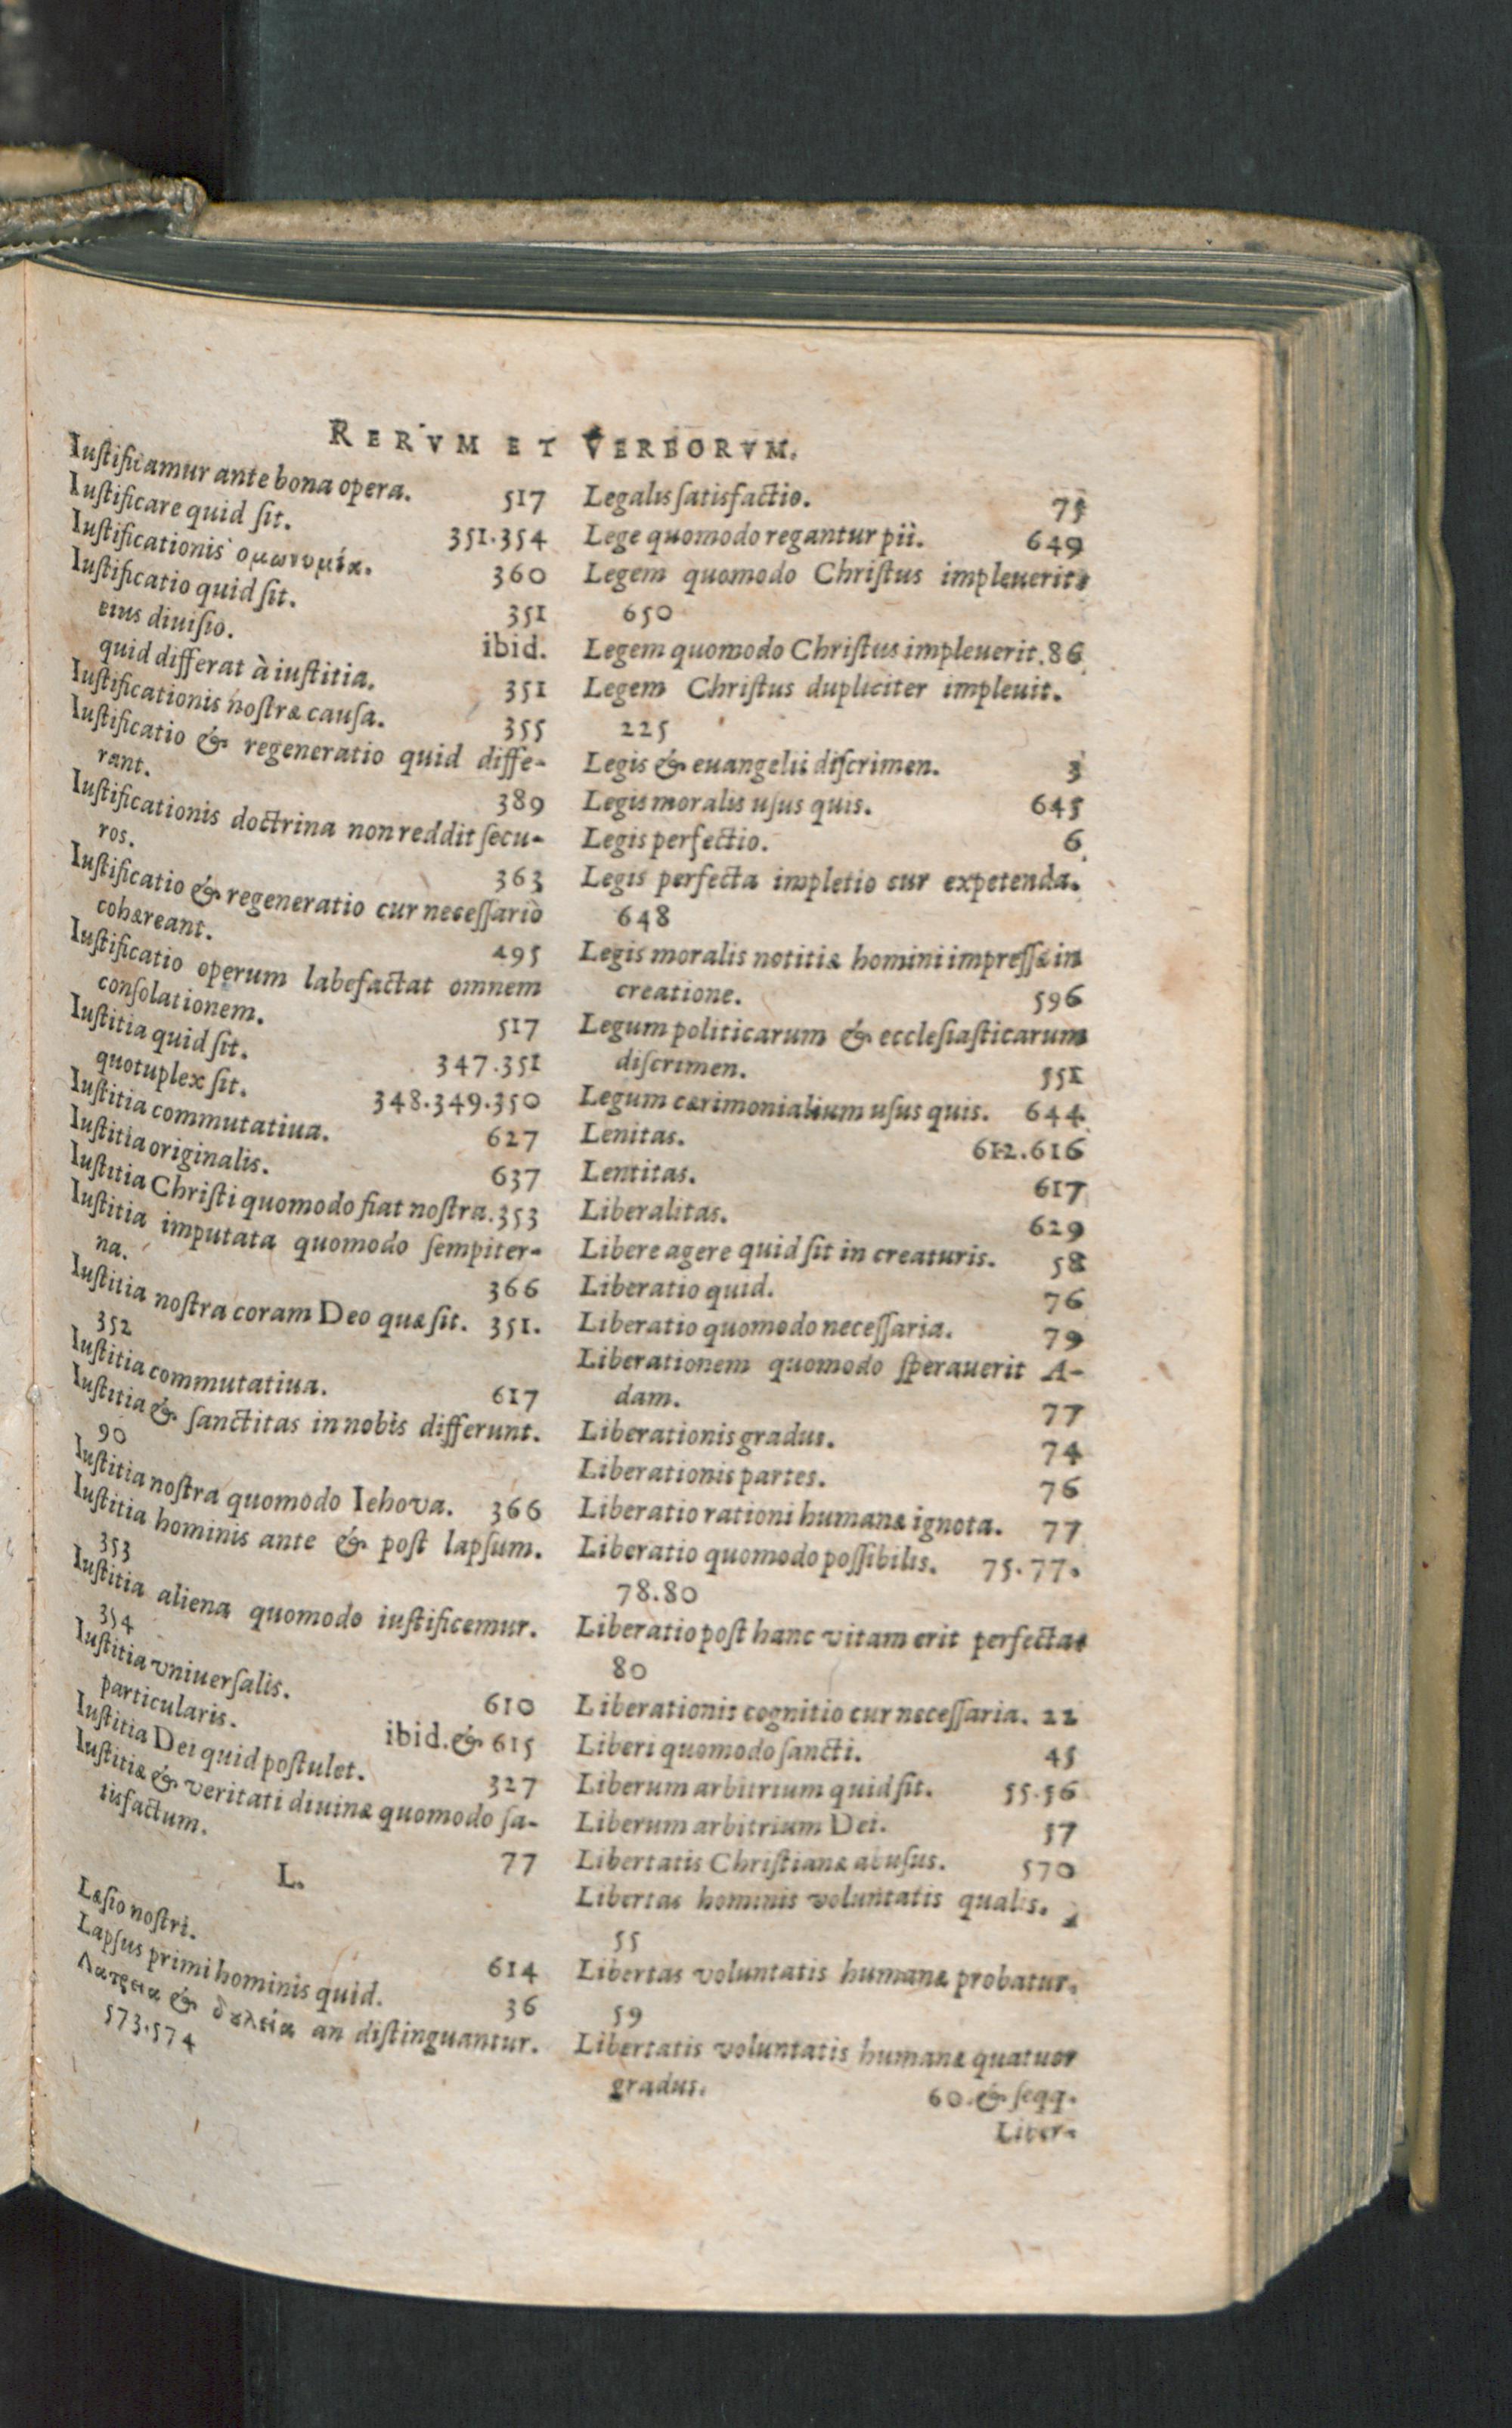 RERVM ET VERBORVM.
Iustificamur ante bona opera. 517
Iustificare quid sit. 351.354
Iustificationis ὁμωνυμία. 360
Iustificatio quid sit. 351
eius diuisio. ibid.
quid differat à iustitia. 351
Iustificationis nostræ causa. 355
Iustificatio & regeneratio quid diffe-
rant. 389
Iustificationis doctrina non reddit secu-
ros. 363
Iustificatio & regeneratio cur necessariò
cohæreant. 495
Iustificatio operum labefactat omnem
consolationem. 517
Iustitia quid sit. 347.351
quotuplex sit. 348.349.350
Iustitia commutatiua. 627
Iustitia originalis. 637
Iustitia Christi quomodo fiat nostra. 353
Iustitia imputata quomodo sempiter-
na. 366
Iustitia nostra coram Deo quæ sit. 351.
352
Iustitia commutatiua. 617
Iustitia & sanctitas in nobis differunt.
90
Iustitia nostra quomodo Iehova. 366
Iustitia hominis ante & post lapsum.
353
Iustitia aliena quomodo iustificemur.
354
Iustitia vniuersalis. 610
particularis. ibid. & 615
Iustitia Dei quid postulet. 327
Iustitiæ & veritati diuinæ quomodo sa-
tisfactum. 77
L.
Læsio nostri. 614
Lapsus primi hominis quid. 36
Λατρεια & δȣλεία an distinguantur.
573.574
Legalis satisfactio. 75
Lege quomodo regantur pii. 649
Legem quomodo Christus impleuerit.
650
Legem quomodo Christus impleuerit. 86
Legem Christus dupliciter impleuit.
225
Legis & euangelii discrimen. 3
Legis moralis usus quis. 645
Legis perfectio. 6
Legis perfecta impletio cur expetenda.
648
Legis moralis notitiæ homini impressæ in
creatione. 596
Legum politicarum & ecclesiasticarum
discrimen. 551
Legum cærimonialium usus quis. 644
Lenitas. 612.616
Lentitas. 617
Liberalitas. 629
Libere agere quid sit in creaturis. 58
Liberatio quid. 76
Liberatio quomodo necessaria. 79
Liberationem quomodo sperauerit A-
dam. 77
Liberationis gradus. 74
Liberationis partes. 76
Liberatio rationi humanæ ignota. 77
Liberatio quomodo possibilis. 75.77.
78.80
Liberatio post hanc vitam erit perfecta.
80
Liberationis cognitio cur necessaria. 22
Liberi quomodo sancti. 45
Liberum arbitrium quid sit. 55.56
Liberum arbitrium Dei. 57
Libertatis Christianæ abusus. 570
Libertas hominis voluntatis qualis.
55
Libertas voluntatis humanæ probatur.
59
Libertatis voluntatis humanæ quatuor
gradus. 60. & seqq.
Liber-